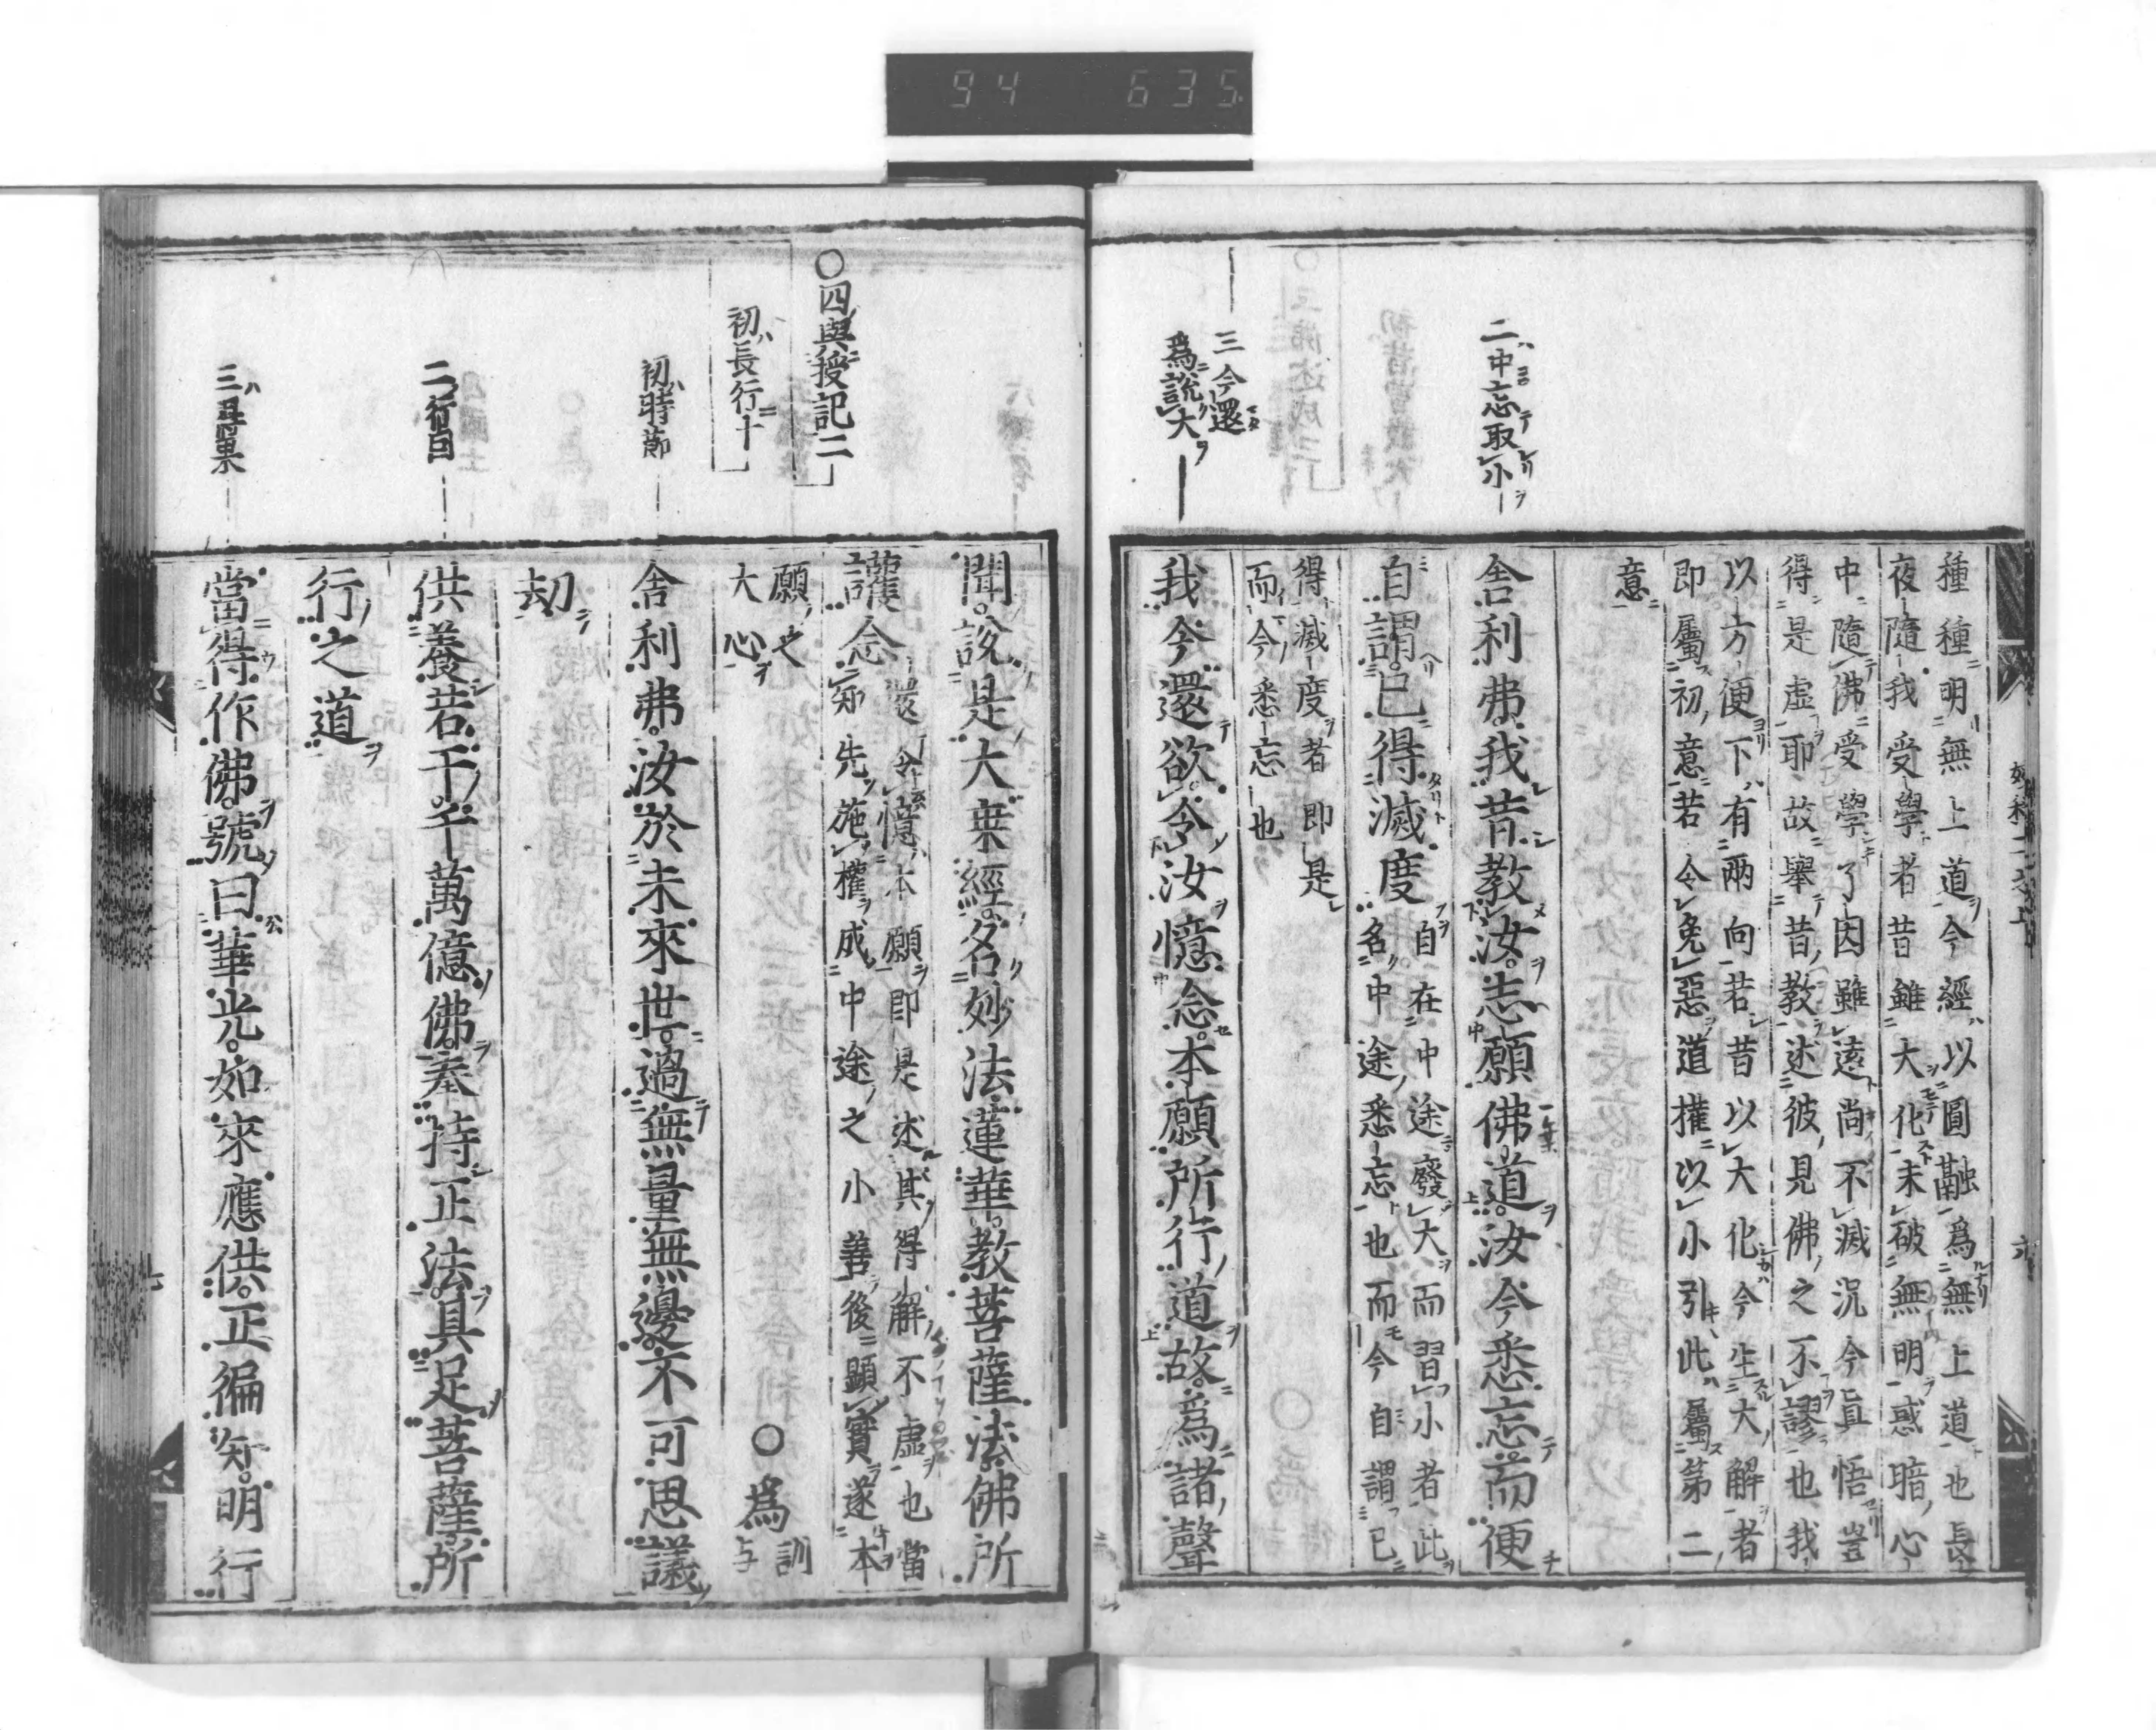 94 635
種種明無上道今經以圓融爲無上道也長
夜隨我受學者昔雖大化未破無明惑暗心
中隨佛受學了因雖遠尚不滅況今眞悟豈
得是虛耶故舉昔教述彼見佛之不謬也我
以方便下有兩向若昔以大化今生大解者
即屬初意若令免惡道權以小引此屬第二
意
二中忘取小
舎利弗我昔教汝志願佛道汝今悉忘而便
自謂已得滅度
自在中途廢大而習小者此
名中途悉忘也而今自謂已
得滅度者即是
而今悉忘也
三今還
爲說大
我今還欲令汝憶念本願所行道故爲諸聲
聞說是大乗經名妙法蓮華教菩薩法佛所
護念
還令憶本願即是述其得解不虛也當
知先施權成中途之小善後顯實遂本
願之
大心
〇爲
訓
与
〇四與授記二
初長行十
初時節
舎利弗汝於未來世過無量無邊不可思議
劫
二行因
供養若干千萬億佛奉持正法具足菩薩所
行之道
三得果
當得作佛號曰華光如來應供正徧知明行